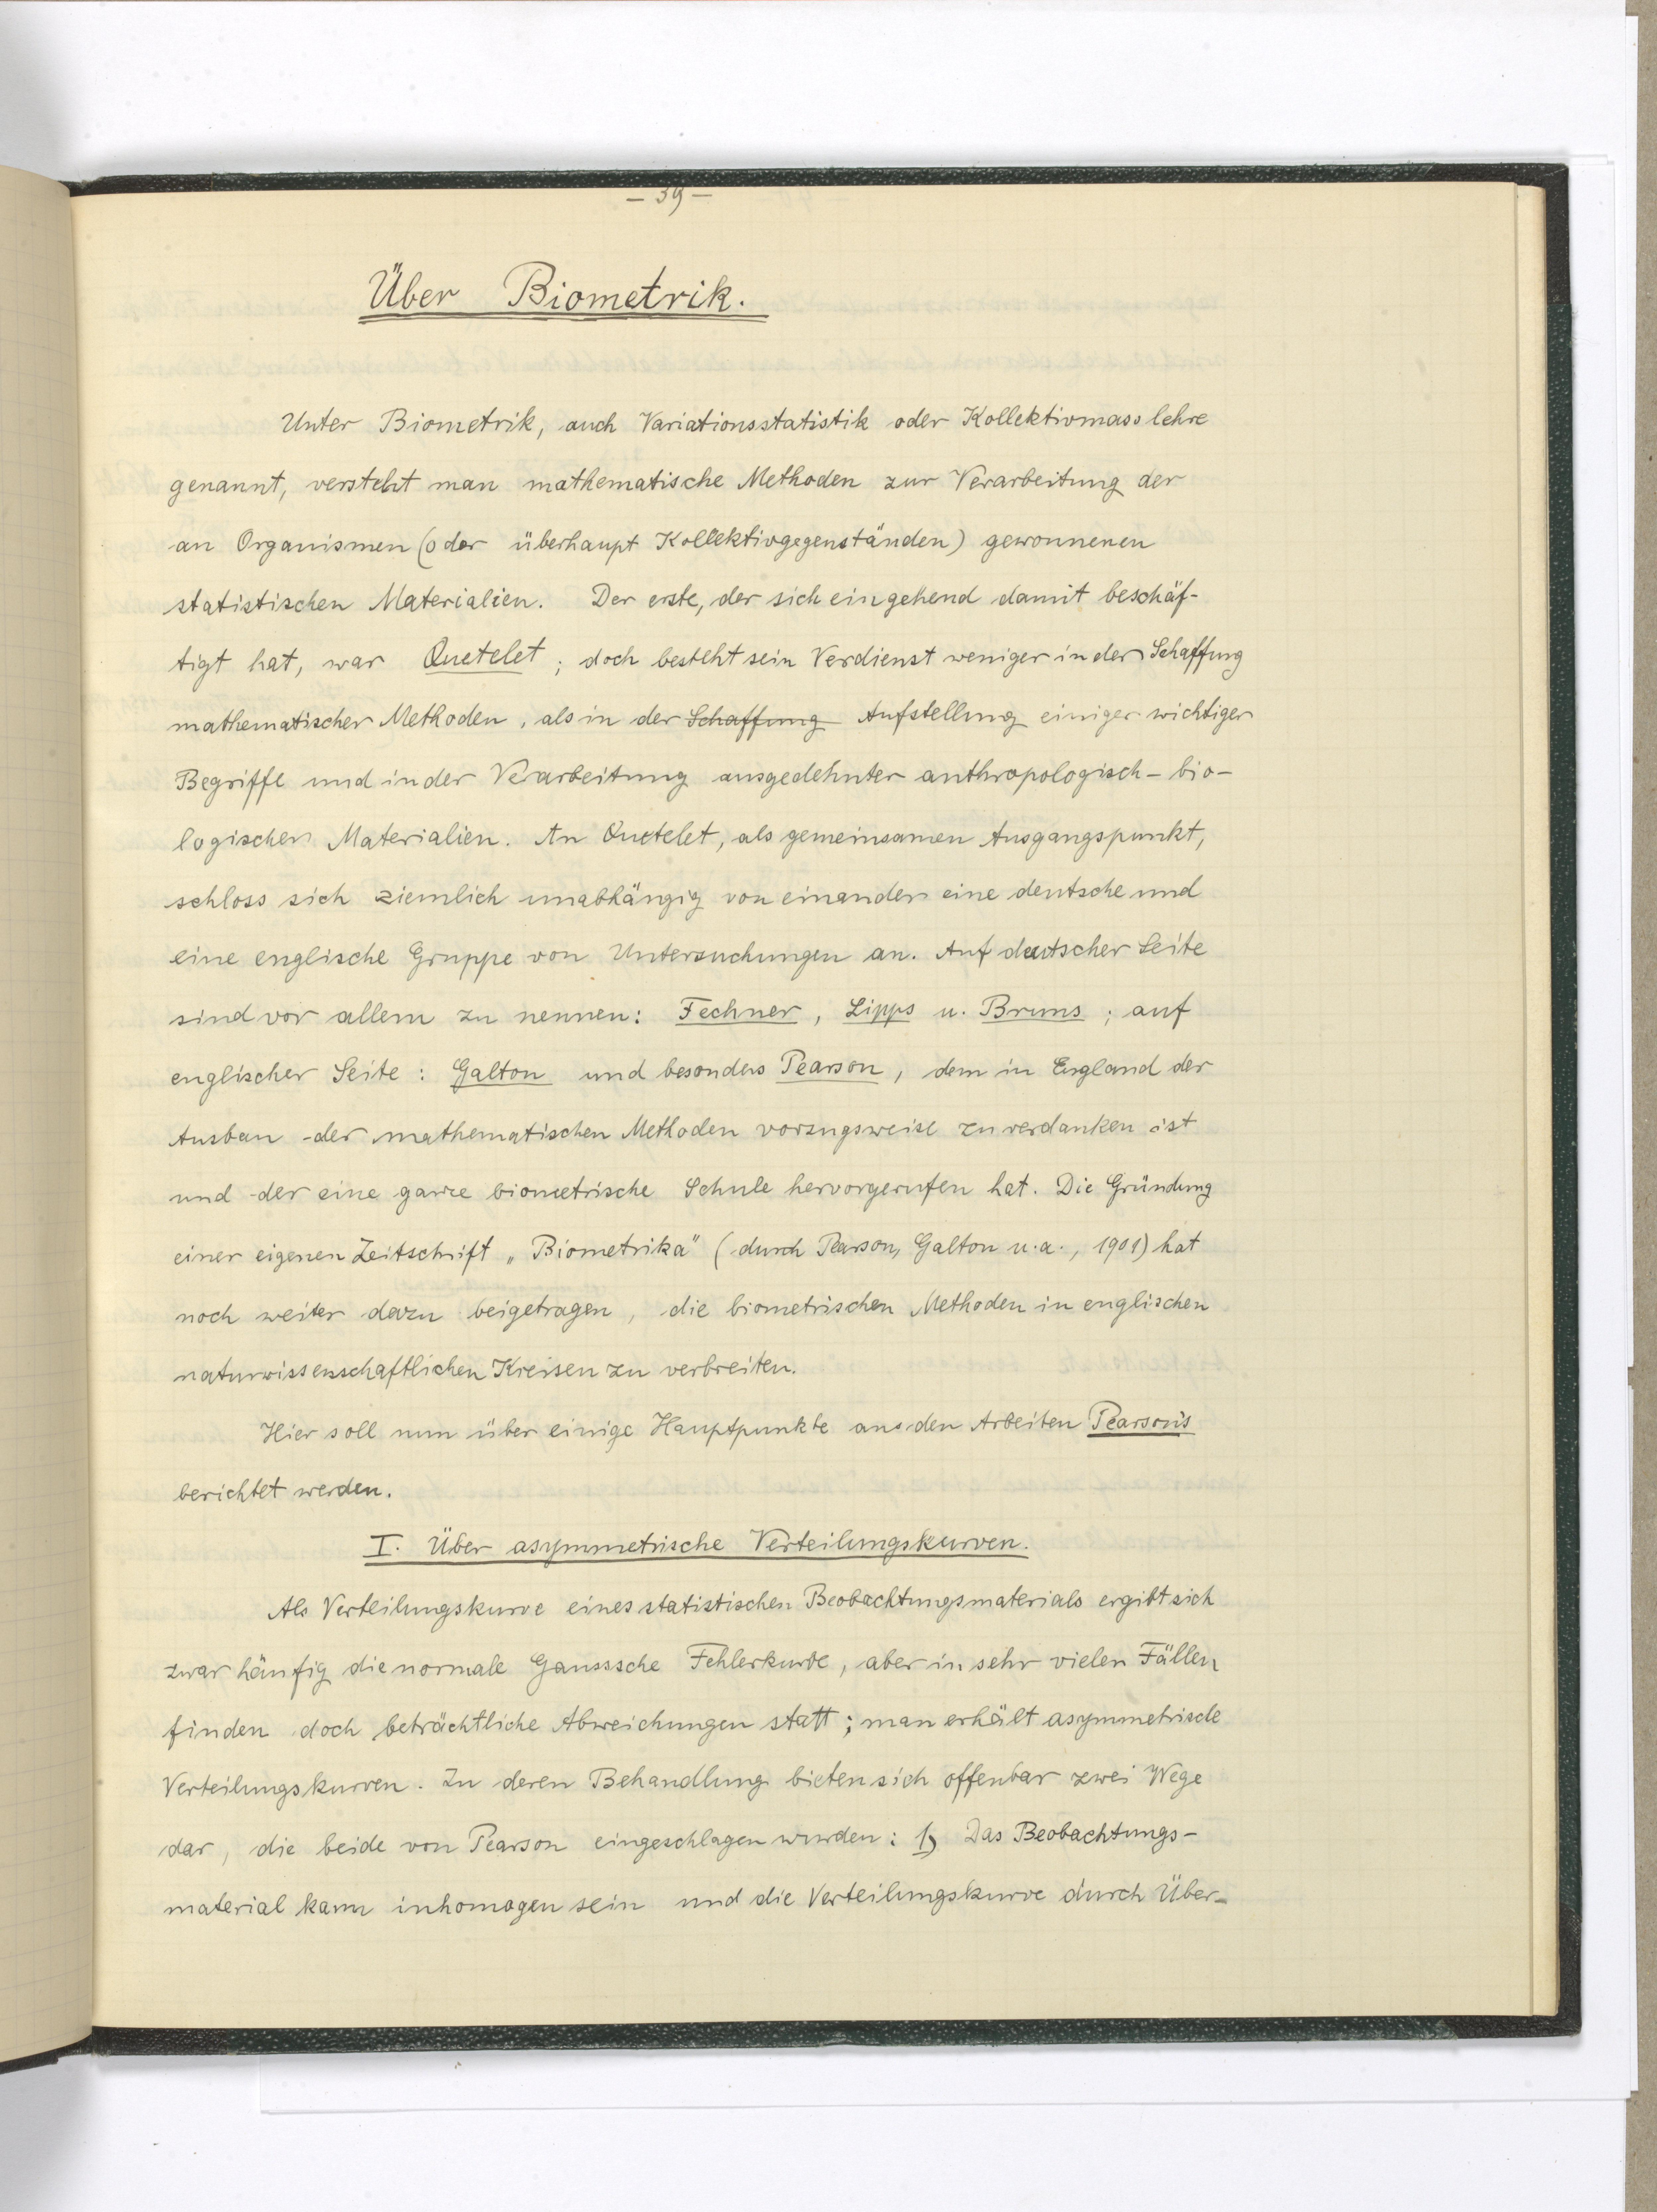 – 39 –
Über Biometrik.
Unter Biometrik, auch Variationsstatistik oder Kollektivmasslehre
genannt, versteht man mathematische Methoden zur Verarbeitung der
an Organismen (oder überhaupt Kollektivgegenständen) gewonnenen
statistischen Materialien. Der erste, der sich eingehend damit beschäf-
tigt hat, war Quetelet; doch besteht sein Verdienst weniger in der Schaffung
mathematischer Methoden, als in der Schaffung Aufstellung einiger wichtiger
Begriffe und in der Verarbeitung ausgedehnter anthropologisch-bio-
logischer Materialien. An Quetelet, als gemeinsamen Ausgangspunkt,
schloss sich ziemlich unabhängig von einander eine deutsche und
eine englische Gruppe von Untersuchungen an. Auf deutscher Seite
sind vor allem zu nennen: Fechner, Lipps u. Bruns; auf
englischer Seite: Galton und besonders Pearson, dem in England der
Ausbau der mathematischen Methoden vorzugsweise zu verdanken ist
und der eine ganze biometrische Schule hervorgerufen hat. Die Gründung
einer eigenen Zeitschrift „Biometrika" (durch Pearson, Galton u.a., 1901) hat
noch weiter dazu beigetragen, die biometrischen Methoden in englischen
naturwissenschaftlichen Kreisen zu verbreiten.
Hier soll nun über einige Hauptpunkte aus den Arbeiten Pearson's
berichtet werden.
I. Über asymmetrische Verteilungskurven.
Als Verteilungskurve eines statistischen Beobachtungsmaterials ergibt sich
zwar häufig die normale Gausssche Fehlerkurve, aber in sehr vielen Fällen
finden doch beträchtliche Abweichungen statt; man erhält asymmetrische
Verteilungskurven. Zu deren Behandlung bieten sich offenbar zwei Wege
dar, die beide von Pearson eingeschlagen wurden: 1) Das Beobachtungs-
material kann inhomogen sein und die Verteilungskurve durch Über-